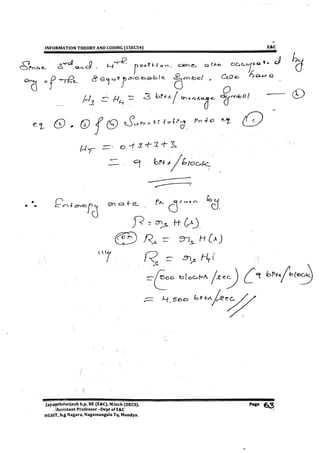 INFORMATION THEORY AND CODING (15EC54) E&C
Since 3rd and 4th position are also occupied by
any of the 8 equiprobable symbol, we have
H3 = H4 = 3 bits/message symbol
eq Substituting into eq
HT = 0+3+3+3
= 9 bits/block
∴ Entropy rate is given by
R = rs H(s)
(or) Rs = rs H(s)
Rs = rs HT
= (500 blocks/sec) (9 bits/block)
= 4,500 bits/sec
Assistant Professor -Dept of E&C
Nagara, Nagamangala Tq, Mandya.
Page 63